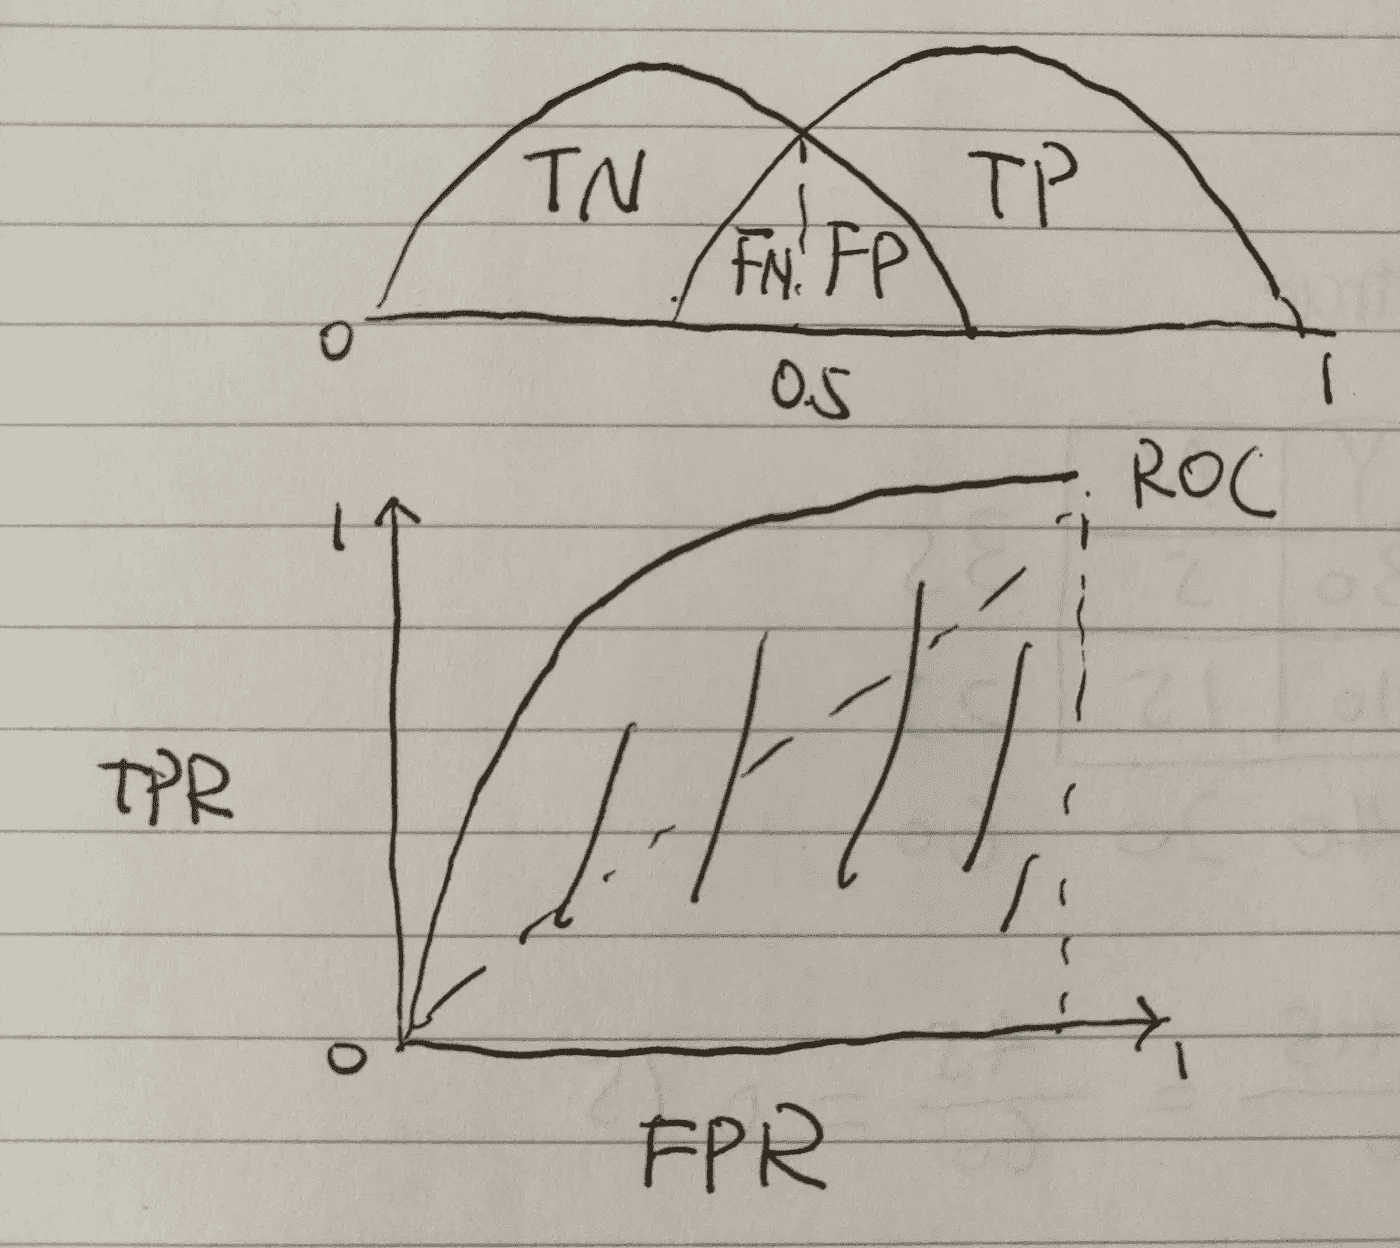 TN TP
FN FP
0 0.5 1
ROC
1
TPR
0 1
FPR